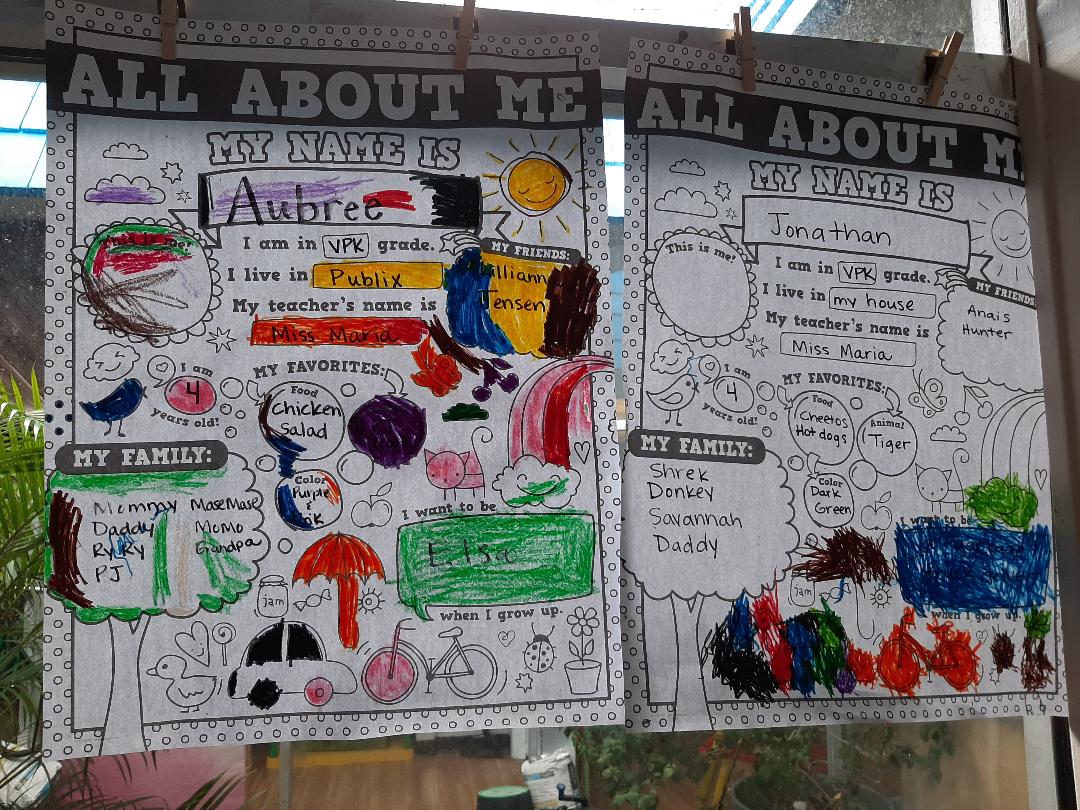 ALL ABOUT ME
MY NAME IS
Aubree
This is me!
I am in VPK grade.
I live in Publix
My teacher's name is
Miss Maria
MY FRIENDS:
Jensen
I am
4
years old!
MY FAVORITES:
Food
Chicken
Salad
Color
Purple
MY FAMILY:
Mommy MaseMase
Daddy MoMo
RyRy Grandpa
PJ
I want to be
Elsa
when I grow up.
jam
ALL ABOUT M
MY NAME IS
Jonathan
This is me!
I am in VPK grade.
I live in my house
My teacher's name is
Miss Maria
MY FRIENDS
Anais
Hunter
I am
4
years old!
MY FAVORITES:
Food
Cheetos
Hot dogs
Animal
Tiger
Color
Dark
Green
MY FAMILY:
Shrek
Donkey
Savannah
Daddy
I want to be
when I grow up.
jam